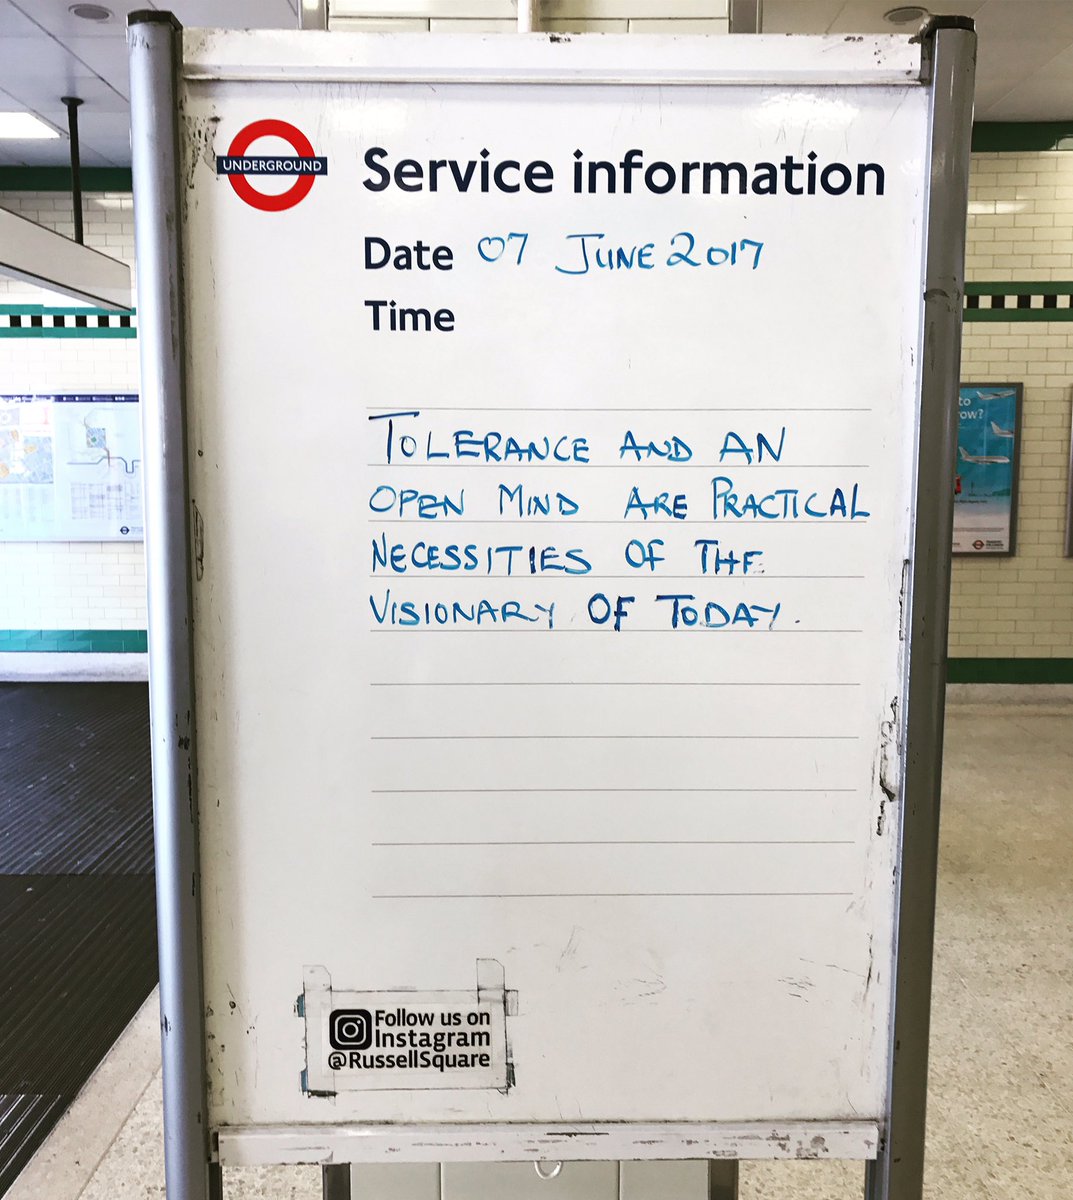 UNDERGROUND
Service information
Date 07 JUNE 2017
Time
TOLERANCE AND AN
OPEN MIND ARE PRACTICAL
NECESSITIES OF THE
VISIONARY OF TODAY.
Follow us on
Instagram
@RussellSquare
to
row?